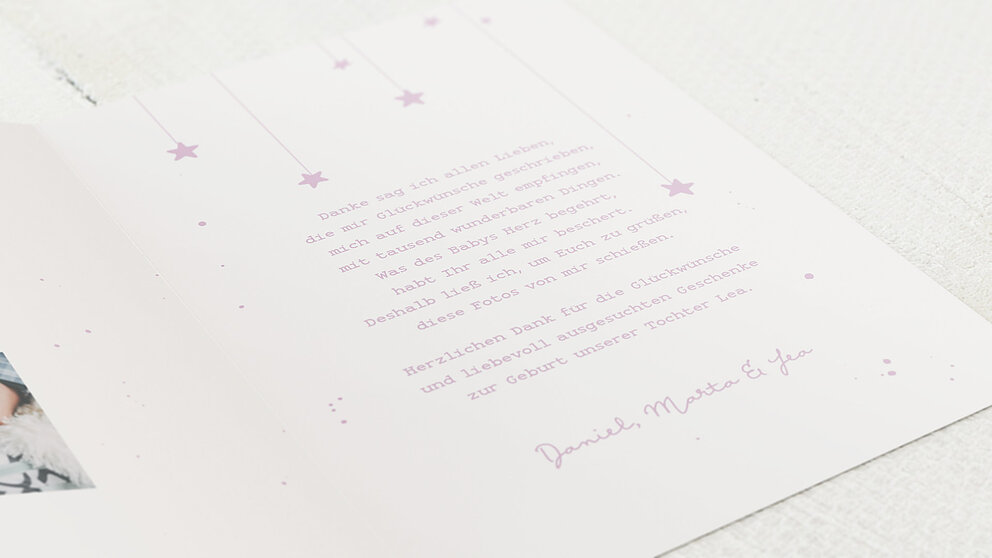 Danke sag ich allen Lieben,
die mir Glückwünsche geschrieben,
mich auf dieser Welt empfingen,
mit tausend wunderbaren Dingen.
Was des Babys Herz begehrt,
habt Ihr alle mir beschert.
Deshalb ließ ich, um Euch zu grüßen,
diese Fotos von mir schießen.
Herzlichen Dank für die Glückwünsche
und liebevoll ausgesuchten Geschenke
zur Geburt unserer Tochter Lea.
Daniel, Marta & Lea